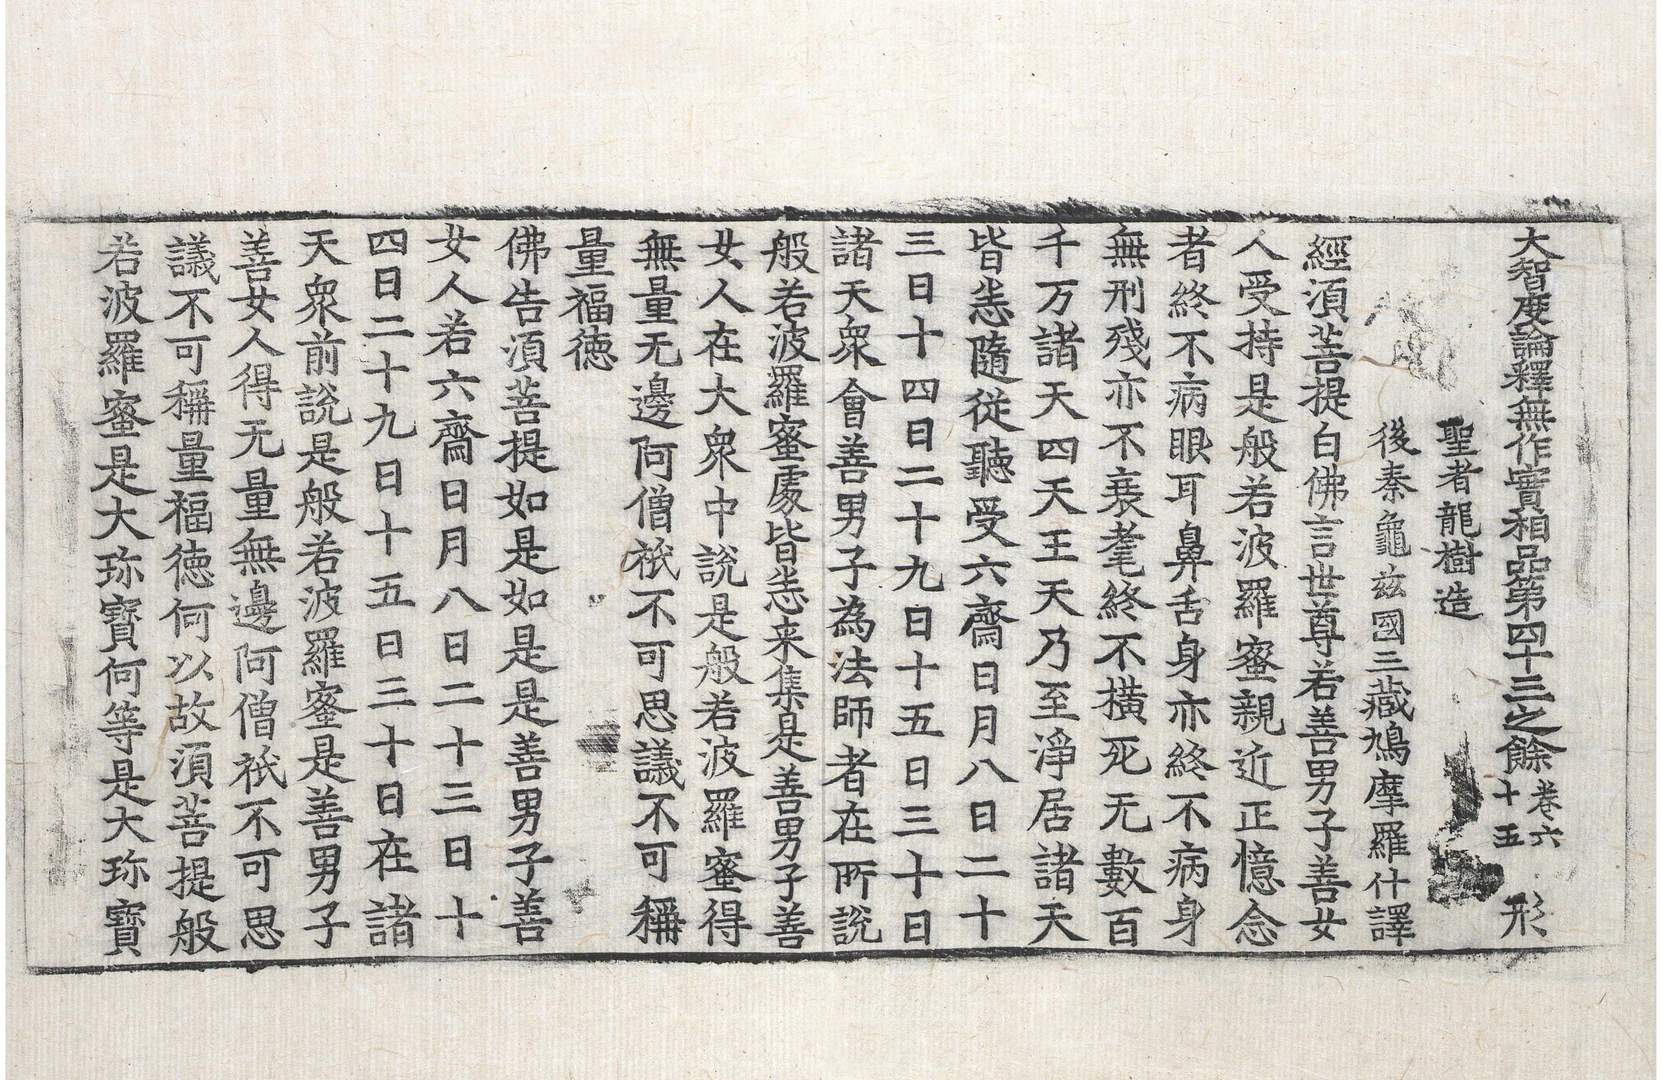 大智度論釋無作實相品第四十三之餘 卷六十五 形
聖者龍樹造
後秦龜兹國三藏鳩摩羅什譯
經湏菩提白佛言世尊若善男子善女
人受持是般若波羅蜜親近正憶念
者終不病眼耳鼻舌身亦終不病身
無刑殘亦不衰耄終不橫死无數百
千万諸天四天王天乃至淨居諸天
皆悉隨從聽受六齋日月八日二十
三日十四日二十九日十五日三十日
諸天衆會善男子為法師者在所說
般若波羅蜜處皆悉来集是善男子善
女人在大衆中說是般若波羅蜜得
無量无邊阿僧祇不可思議不可稱
量福德
佛告湏菩提如是如是是善男子善
女人若六齋日月八日二十三日十
四日二十九日十五日三十日在諸
天衆前說是般若波羅蜜是善男子
善女人得无量無邊阿僧祇不可思
議不可稱量福德何以故湏菩提般
若波羅蜜是大珎寶何等是大珎寶